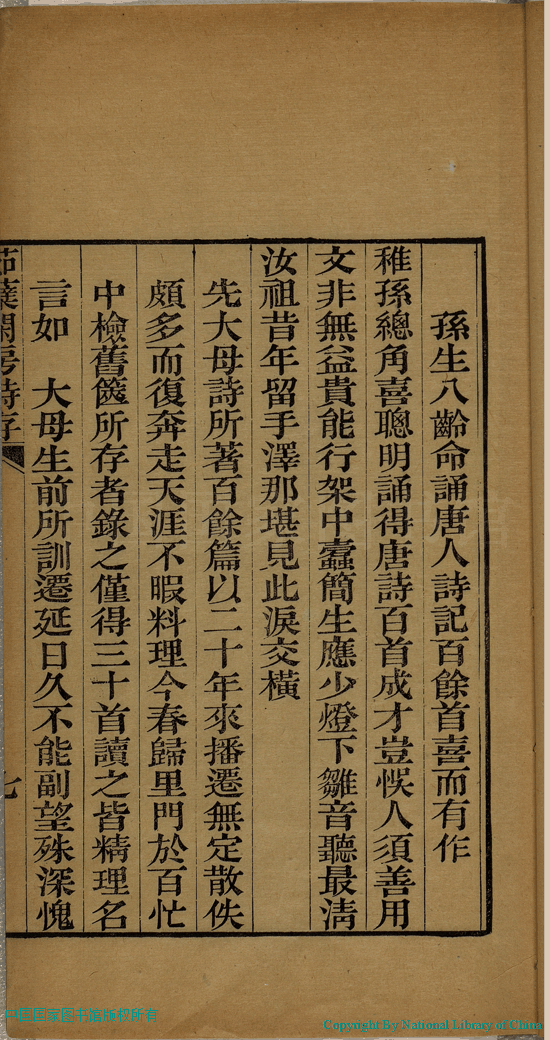 孫生八齡命誦唐人詩記百餘首喜而有作
稚孫總角喜聰明誦得唐詩百首成才豈悞人須善用
文非無益貴能行架中蠧簡生應少燈下雛音聽最淸
汝祖昔年留手澤那堪見此淚交橫
先大母詩所著百餘篇以二十年來播遷無定散佚
頗多而復奔走天涯不暇料理今春歸里門於百忙
中檢舊篋所存者錄之僅得三十首讀之皆精理名
言如　大母生前所訓遷延日久不能副望殊深愧
茹蘗閑房詩存
七
中国国家图书馆版权所有
Copyright By National Library of China